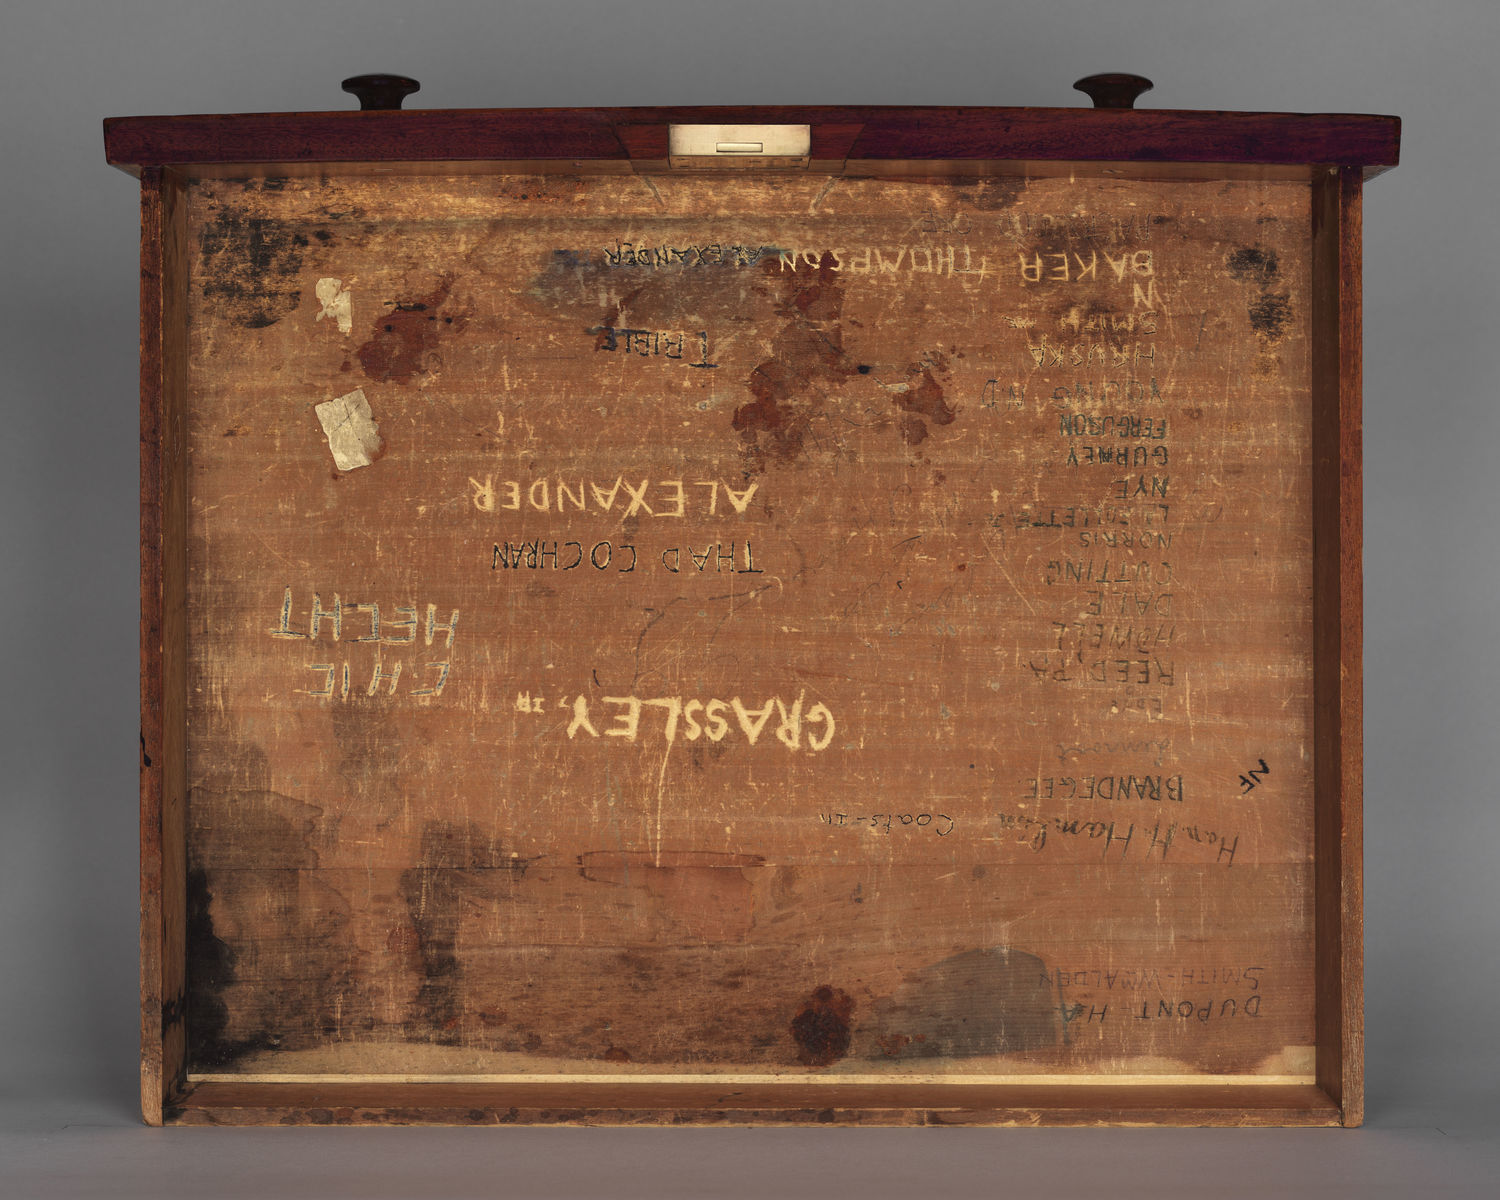 DUPONT-HA
Hon. H. Hamlin Coats-in
BRANDEGEE.
NF
Edge
GRASSLEY, IA
REED, PA.
CHIC
HOWELL
HECHT
DALE
CUTTING
THAD COCHRAN
NORRIS
LA FOLLETTE Jr
ALEXANDER
NYE
GURNEY
FERGUSON
YOUNG ND
HRUSKA
TRIBLE
SMITH
N
BAKER THOMPSON ALEXANDER